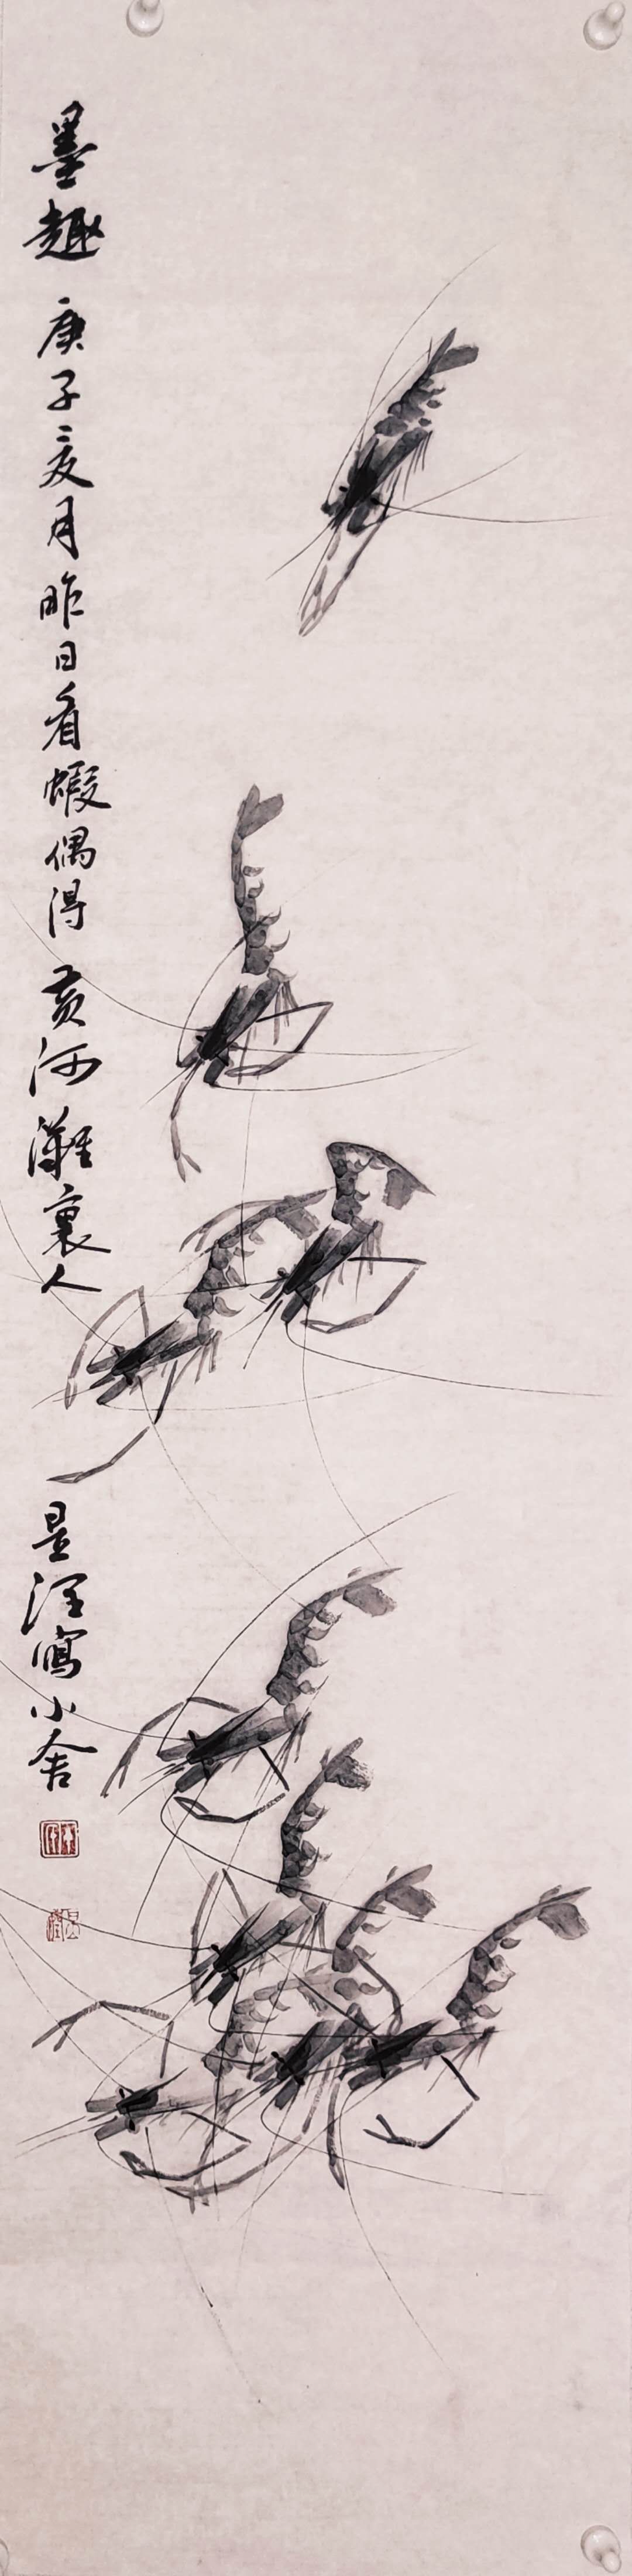 墨趣 庚子亥月昨日看蝦偶得 黄河灘裏人 昱涇寫小舍